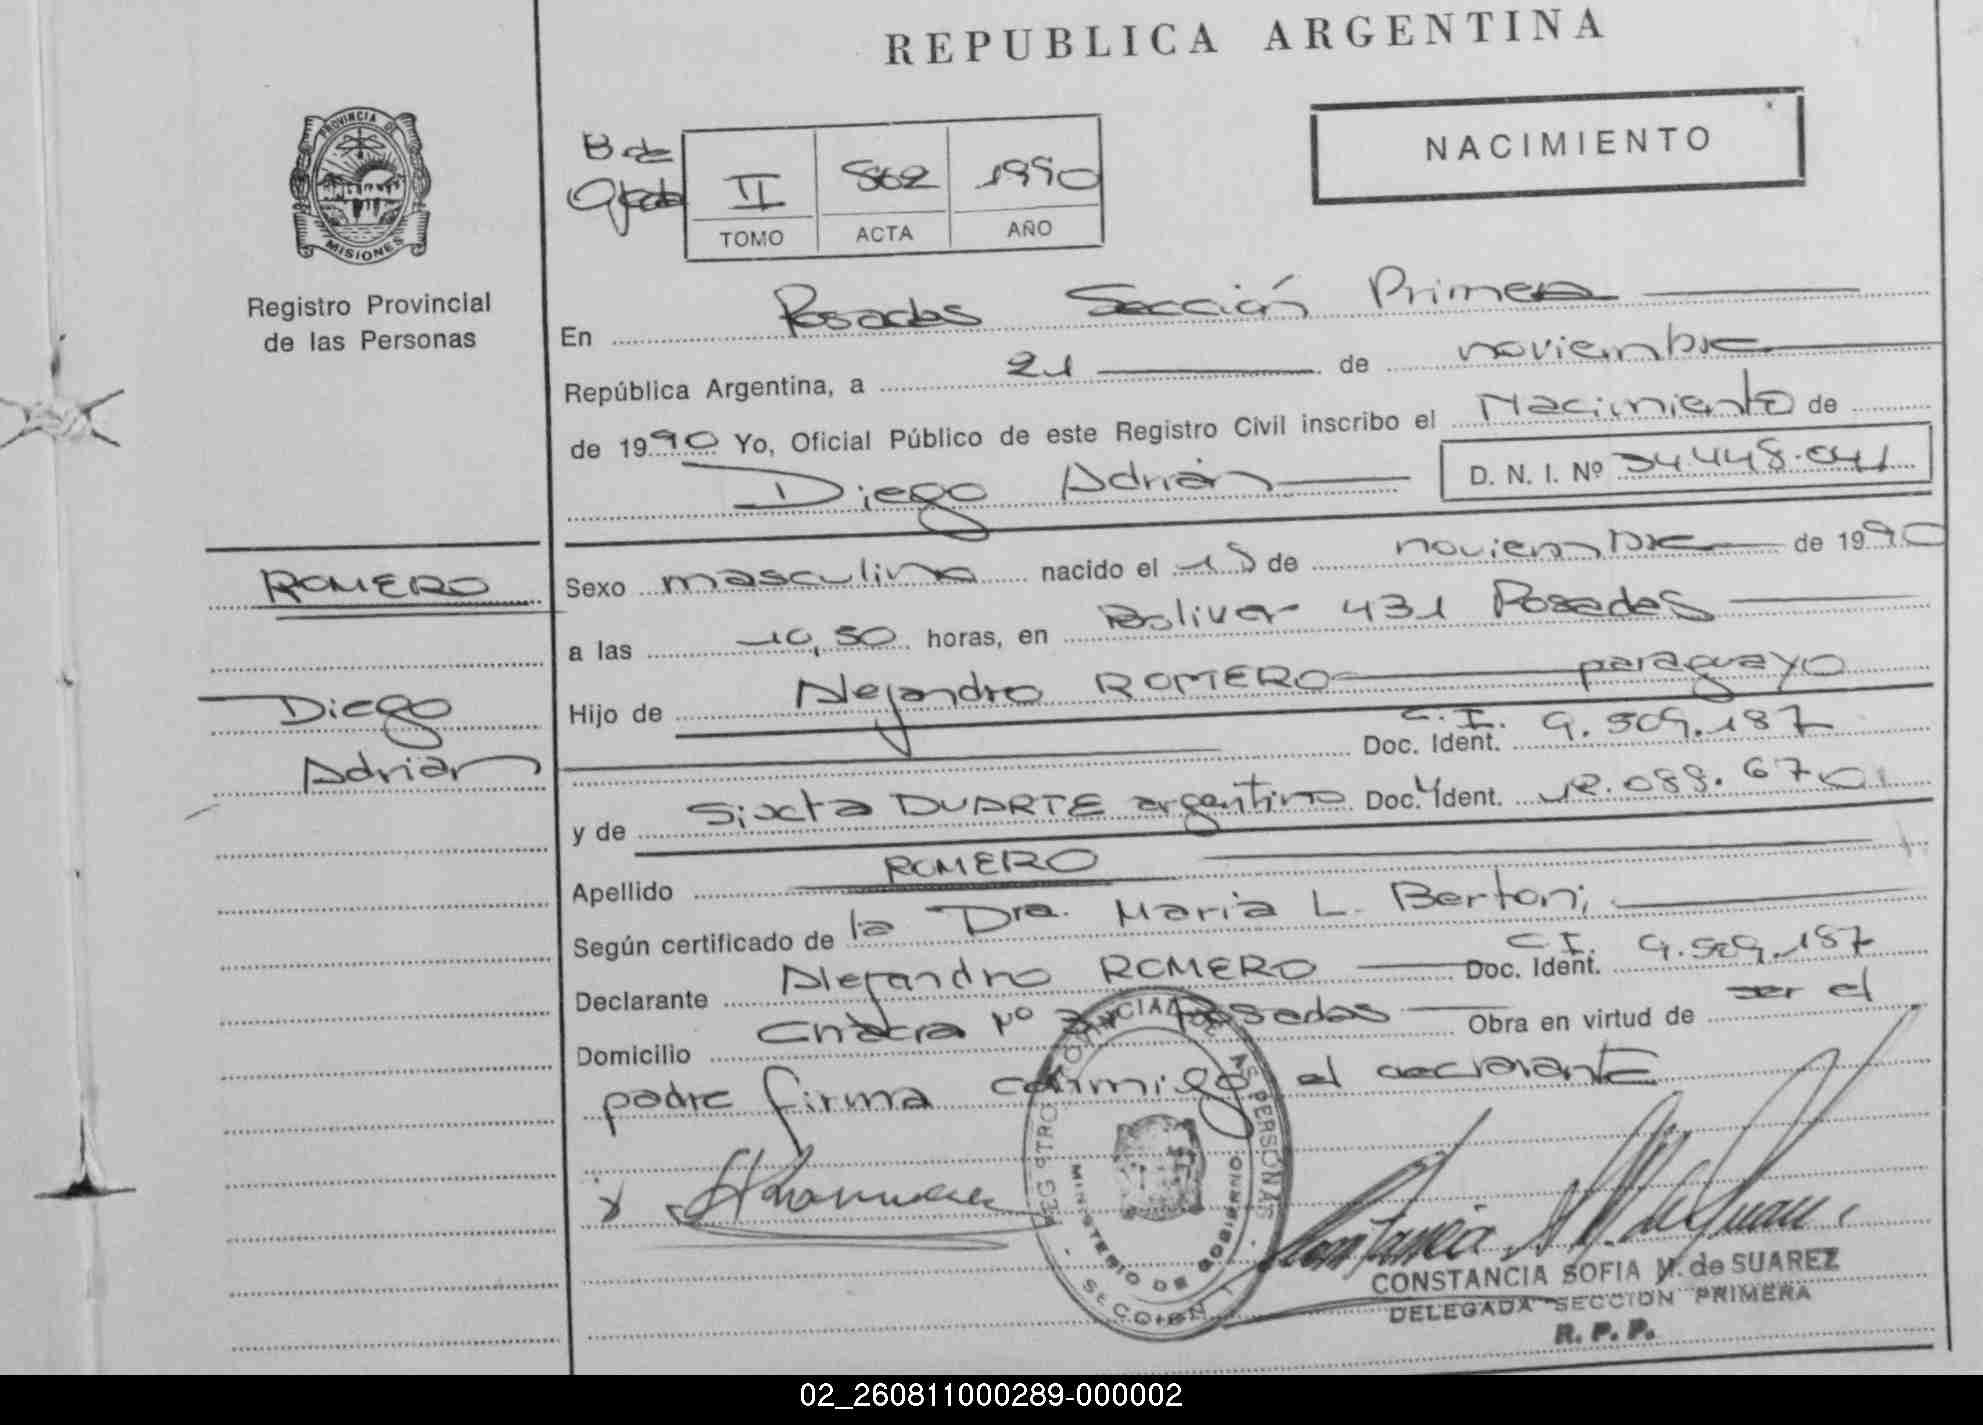 REPUBLICA ARGENTINA
NACIMIENTO
II 862 1990
TOMO ACTA AÑO
PROVINCIA DE
MISIONES
Registro Provincial
de las Personas
En Posadas Sección Primera
República Argentina, a 21 de noviembre
de 1990 Yo, Oficial Público de este Registro Civil inscribo el Nacimiento de
Diego Adrián D. N. I. Nº 34.448.041
ROMERO
Diego
Adrián
Sexo masculino nacido el 15 de noviembre de 1990
a las 10,50 horas, en Bolivar 431 Posadas
Hijo de Alejandro ROMERO paraguayo
Doc. Ident. C.I. 9.509.187
y de Sixta DUARTE argentina Doc. Ident. 12.088.670
Apellido ROMERO
Según certificado de la Dra. Maria L. Bertoni
Declarante Alejandro ROMERO Doc. Ident. C.I. 9.509.187
Domicilio Chacra Nº Posadas Obra en virtud de ser el
padre firma conmigo el declarante
REGISTRO PROVINCIAL DE LAS PERSONAS
MINISTERIO DE GOBIERNO
SECCION 1
CONSTANCIA SOFIA M. de SUAREZ
DELEGADA SECCION PRIMERA
R. P. P.
02_260811000289-000002